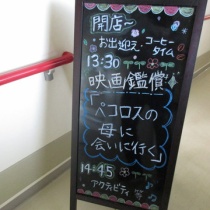 開店〜
お出迎え コーヒー
タイム
13:30
映画鑑賞
「ペコロスの
母に
会いに行く」
14:45
アクティビティ